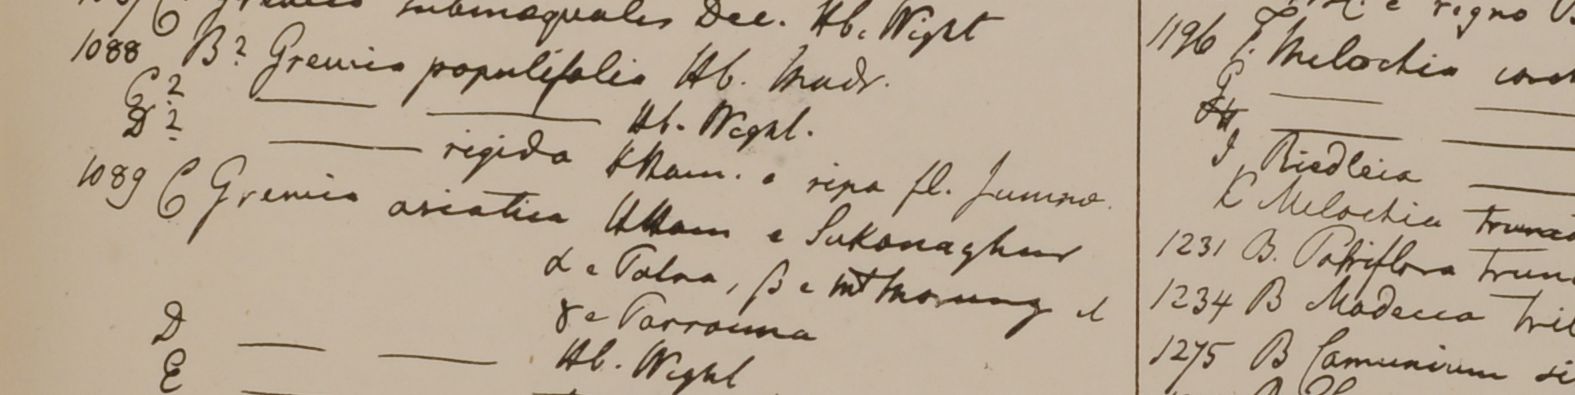 Grewia subinaequalis Dec. Hb. Wight
1088 B? Grewia populifolia Hb. Madr.
C? — — Hb. Wight.
D? — rigida HHam. e ripa fl. Jumnae.
1089 C Grewia asiatica HHam e Sukanaghur
α e Patna, β e mt Morung et
γ e
D — — Hb. Wight
E —
e regno
1196 F. Melochia
G — —
H — —
I, Riedleia —
K Melochia
1231 B.
1234 B Modecca
1275 B Camunium